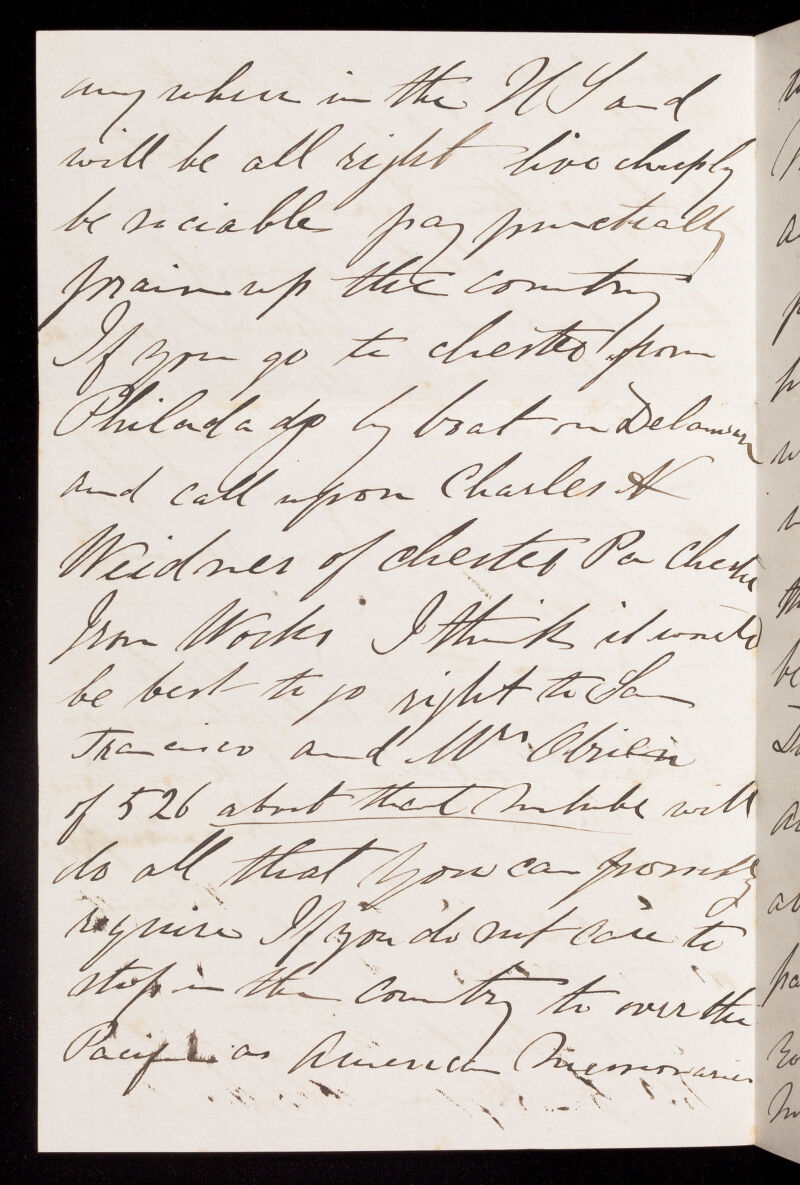 any where in the U S and
will be all right live cheaply
be sociable pay punctually
up the country
If you go to chester from
Philada by boat on Delaware
and call upon Charles H
Weidner of chester Pa Chester
Iron Works I think it would
be best to go right to San
Francisco and Mrs Obrien
of 526 about that number will
do all that you can
require If you do not care to
stop in the country to over the
Pacific as American